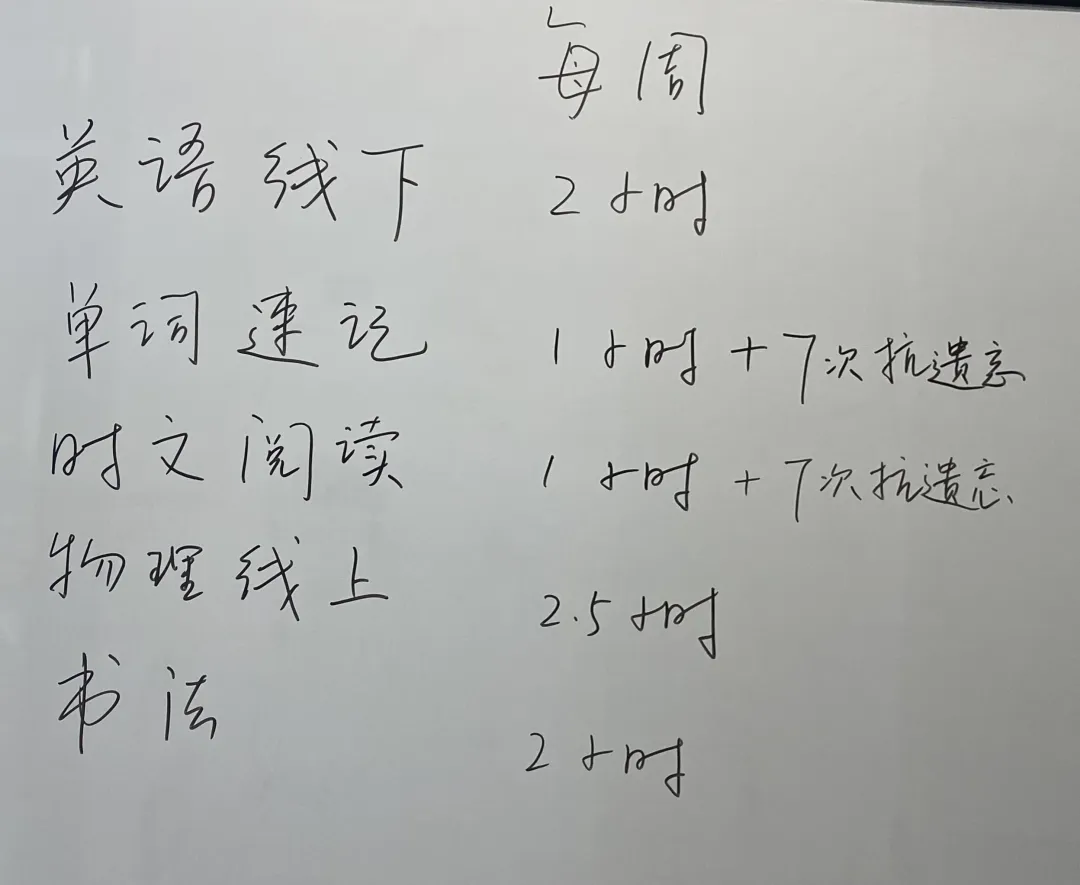 每周
英语线下 2小时
单词速记 1小时+7次抗遗忘
时文阅读 1小时+7次抗遗忘
物理线上 2.5小时
书法 2小时